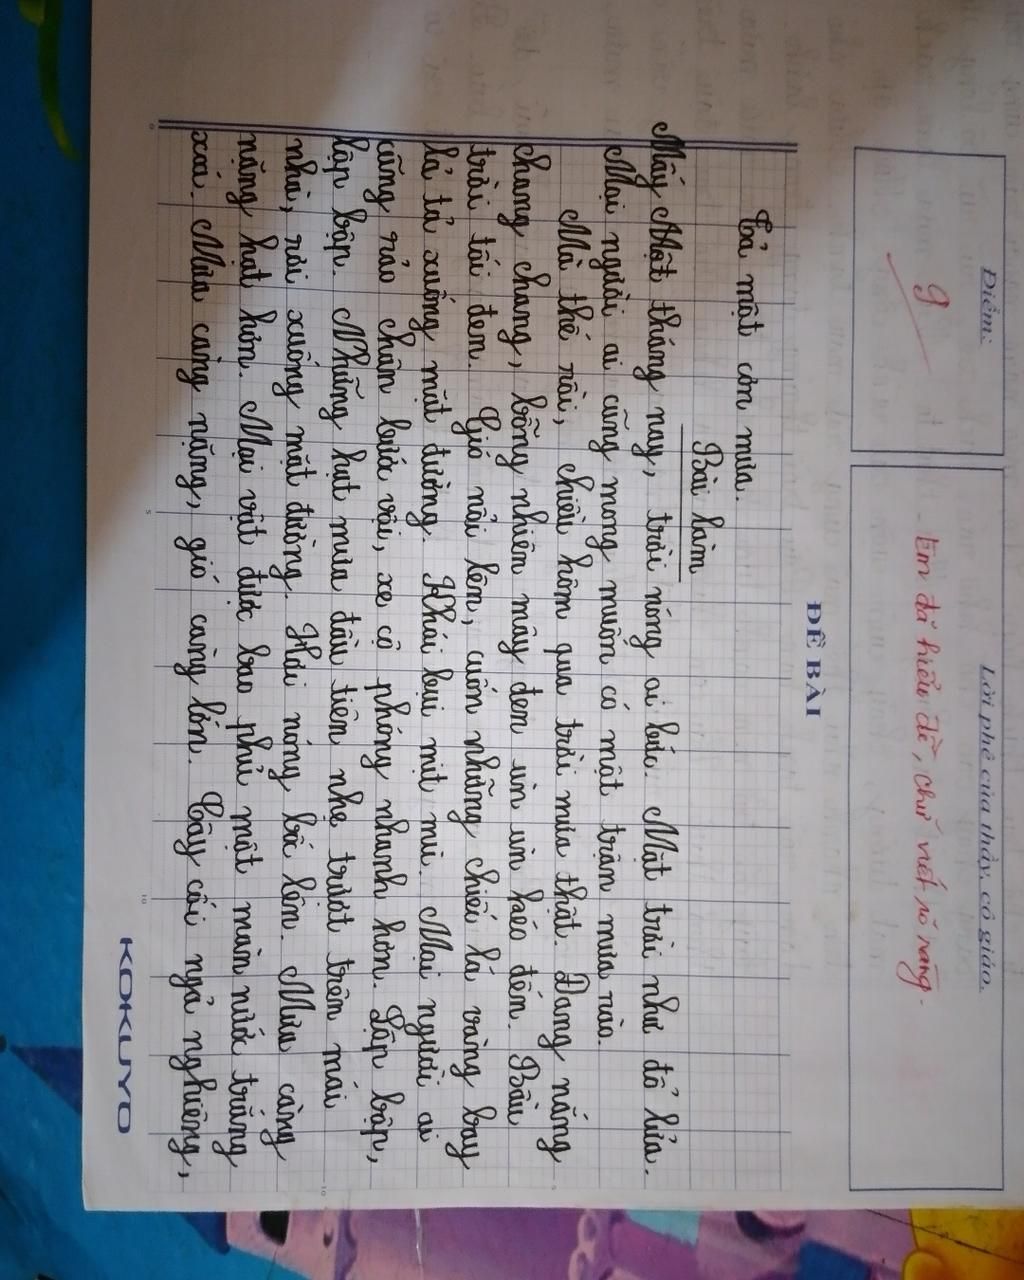 Điểm:
9
Lời phê của thầy, cô giáo.
- Em đã hiểu đề, chữ viết rõ ràng.
ĐỀ BÀI
Tả một cơn mưa.
Bài làm
Mấy một tháng nay, trời nóng ai bức. Mặt trời như đổ lửa.
Mọi người ai cũng mong muốn có một trận mưa rào.
Mà thế rồi, chiều hôm qua trời mưa thật. Đang nắng
chang chang, bỗng nhiên mây đen ùn ùn kéo đến. Bầu
trời tối đen. Gió nổi lên, cuốn những chiếc lá vàng bay
lả tả xuống mặt đường. Khói bụi mịt mù. Mọi người ai
cũng rảo chân bước vội, xe cộ phóng nhanh hơn. Lộp bộp,
lộp bộp. Những hạt mưa đầu tiên nhẹ trượt trên mái
nhà, rơi xuống mặt đường. Hơi nóng bốc lên. Mưa càng
nặng hạt hơn. Mọi vật được bao phủ một màn nước trắng
xoá. Mưa càng nặng, gió càng lớn. Cây cối ngả nghiêng,
KOKUYO